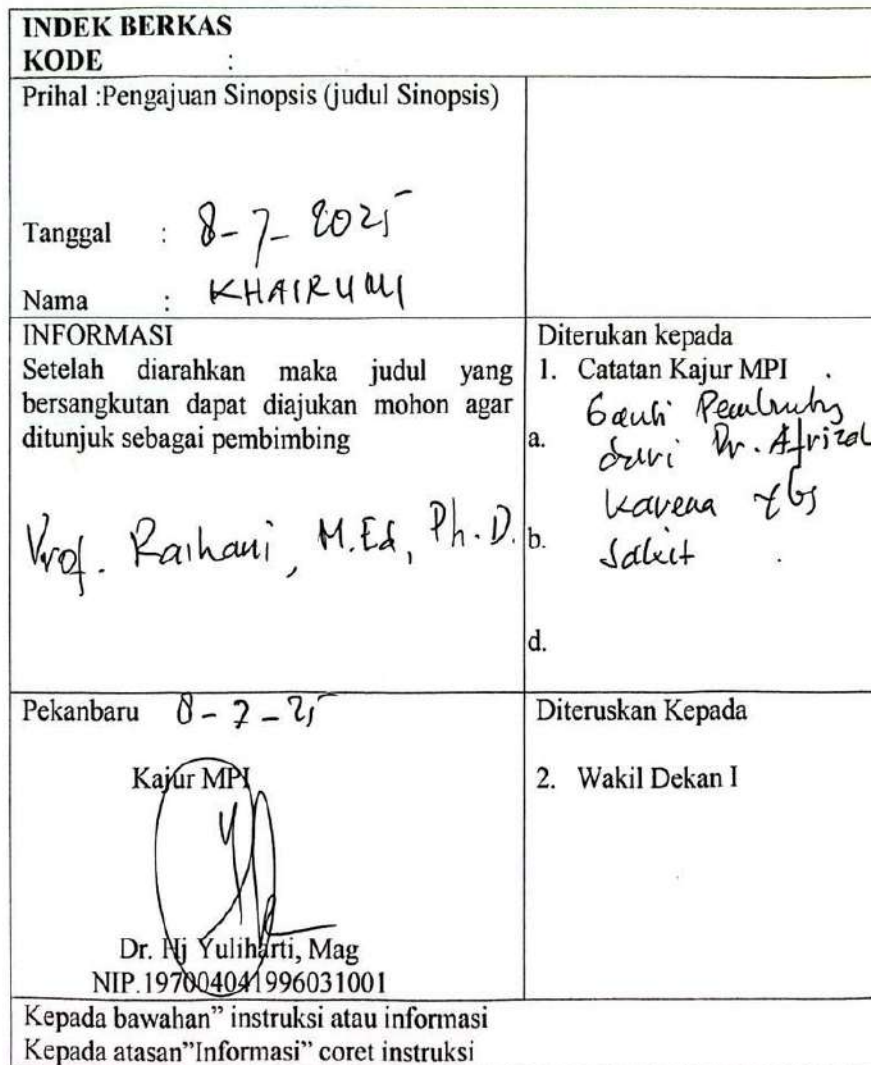 INDEK BERKAS
KODE :
Prihal :Pengajuan Sinopsis (judul Sinopsis)
Tanggal : 8-7-2025
Nama :
INFORMASI
Setelah diarahkan maka judul yang
bersangkutan dapat diajukan mohon agar
ditunjuk sebagai pembimbing
Prof. Raihani, M.Ed, Ph.D.
Diterukan kepada
1. Catatan Kajur MPI
a. Ganti Pembimbing
dari Dr. Afrizal
b. karena ybs
sakit
d.
Pekanbaru 8-7-25
Kajur MPI
Dr. Hj Yuliharti, Mag
NIP.197004041996031001
Diteruskan Kepada
2. Wakil Dekan I
Kepada bawahan” instruksi atau informasi
Kepada atasan”Informasi” coret instruksi